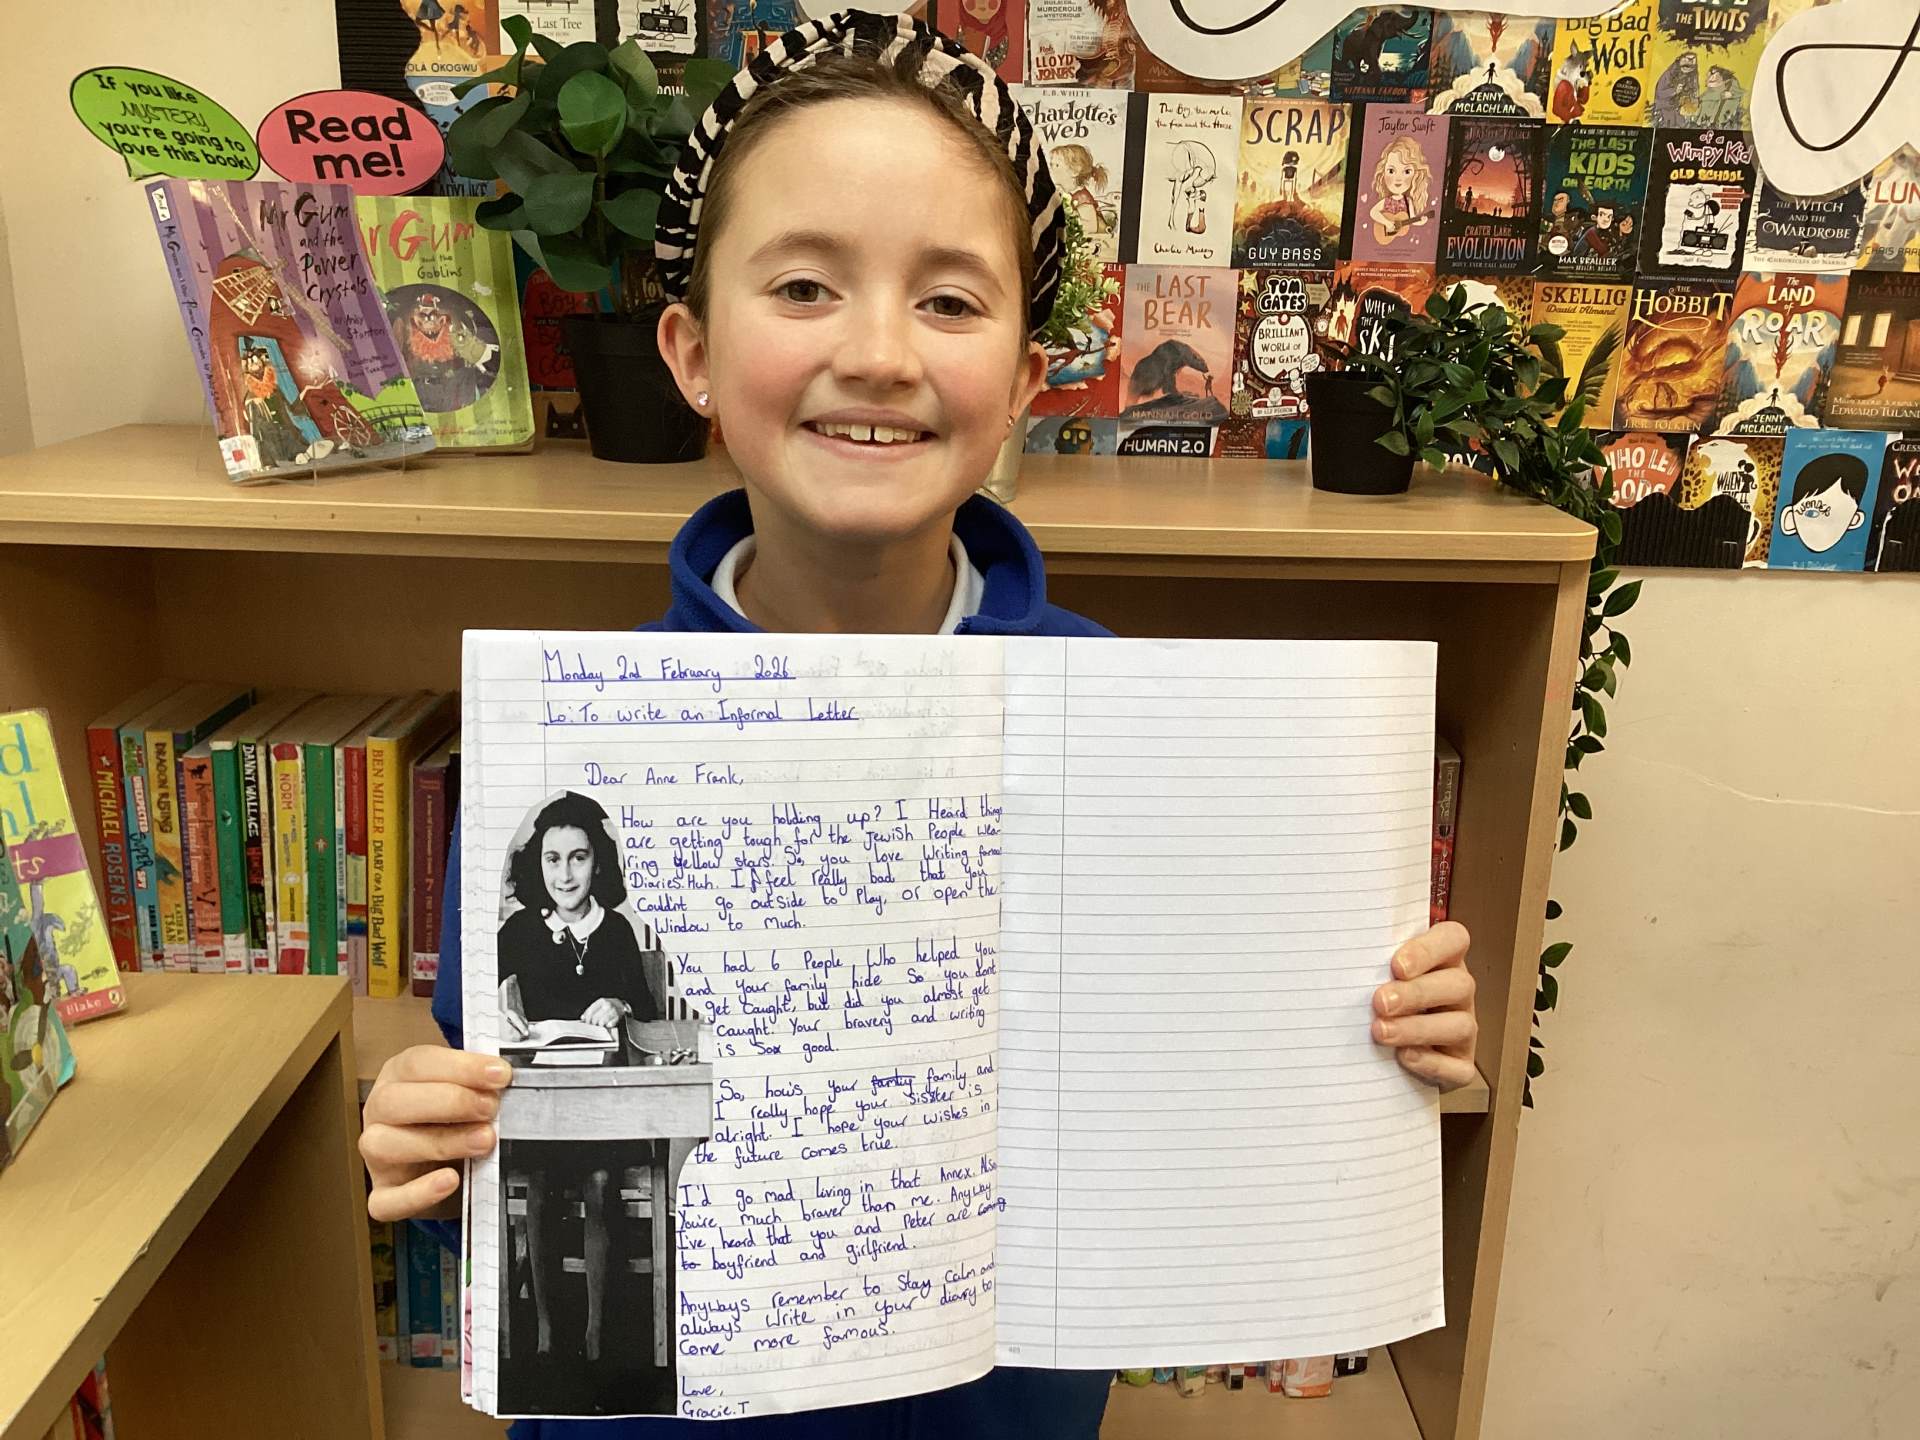 If you like
MYSTERY
you're going to
love this book!
Read
me!
Mr Gum
and the
Power
Crystals
Mr Gum
and the
Goblins
OLA OKOGWU
The Last Tree
LLOYD
JONES
E.B. WHITE
Charlotte's
Web
The Boy, the mole,
the fox and the Horse
Charlie Mackesy
SCRAP
GUY BASS
Taylor Swift
CRATER LAKE
EVOLUTION
JENNY
MCLACHLAN
Big Bad
Wolf
THE TWITS
THE LAST
KIDS
ON EARTH
MAX BRALLIER
of a
Wimpy Kid
OLD SCHOOL
Jeff Kinney
THE WITCH
AND THE
WARDROBE
THE CHRONICLES OF NARNIA
THE LAST
BEAR
HANNAH GOLD
TOM
GATES
THE
BRILLIANT
WORLD OF
TOM GATES
WHEN
THE
SKY
SKELLIG
David Almond
THE
HOBBIT
J.R.R. TOLKIEN
THE
LAND
of
ROAR
JENNY
MCLACHLAN
EDWARD TULANE
HUMAN 2.0
WHO LET
THE
GODS
WHEN
Wonder
MICHAEL ROSEN'S A-Z
DRAGON RISING
DANNY WALLACE
NORM
BEN MILLER DIARY OF A BIG BAD WOLF
Blake
Monday 2nd February 2026
Lo: To write an Informal Letter
Dear Anne Frank,
How are you holding up? I Heard things
are getting tough for the Jewish People wea-
ring yellow stars. So, you love Writing famous
Diaries. Huh. I feel really bad that you
Couldn't go outside to Play, or open the
Window to much.
You had 6 People Who helped you
and your family hide So you dont
get caught, but did you almost get
Caught. Your bravery and writing
is Sox good.
So, how's your family family and
I really hope your sisster is
alright. I hope your wishes in
the future comes true.
I'd go mad, living in that Annex. Also
You're much braver than me. Anyway
I've heard that you and Peter are coming
to boyfriend and girlfriend.
Anyways remember to Stay Calm and
always Write in your diary to
Come more famous.
Love,
Gracie.T